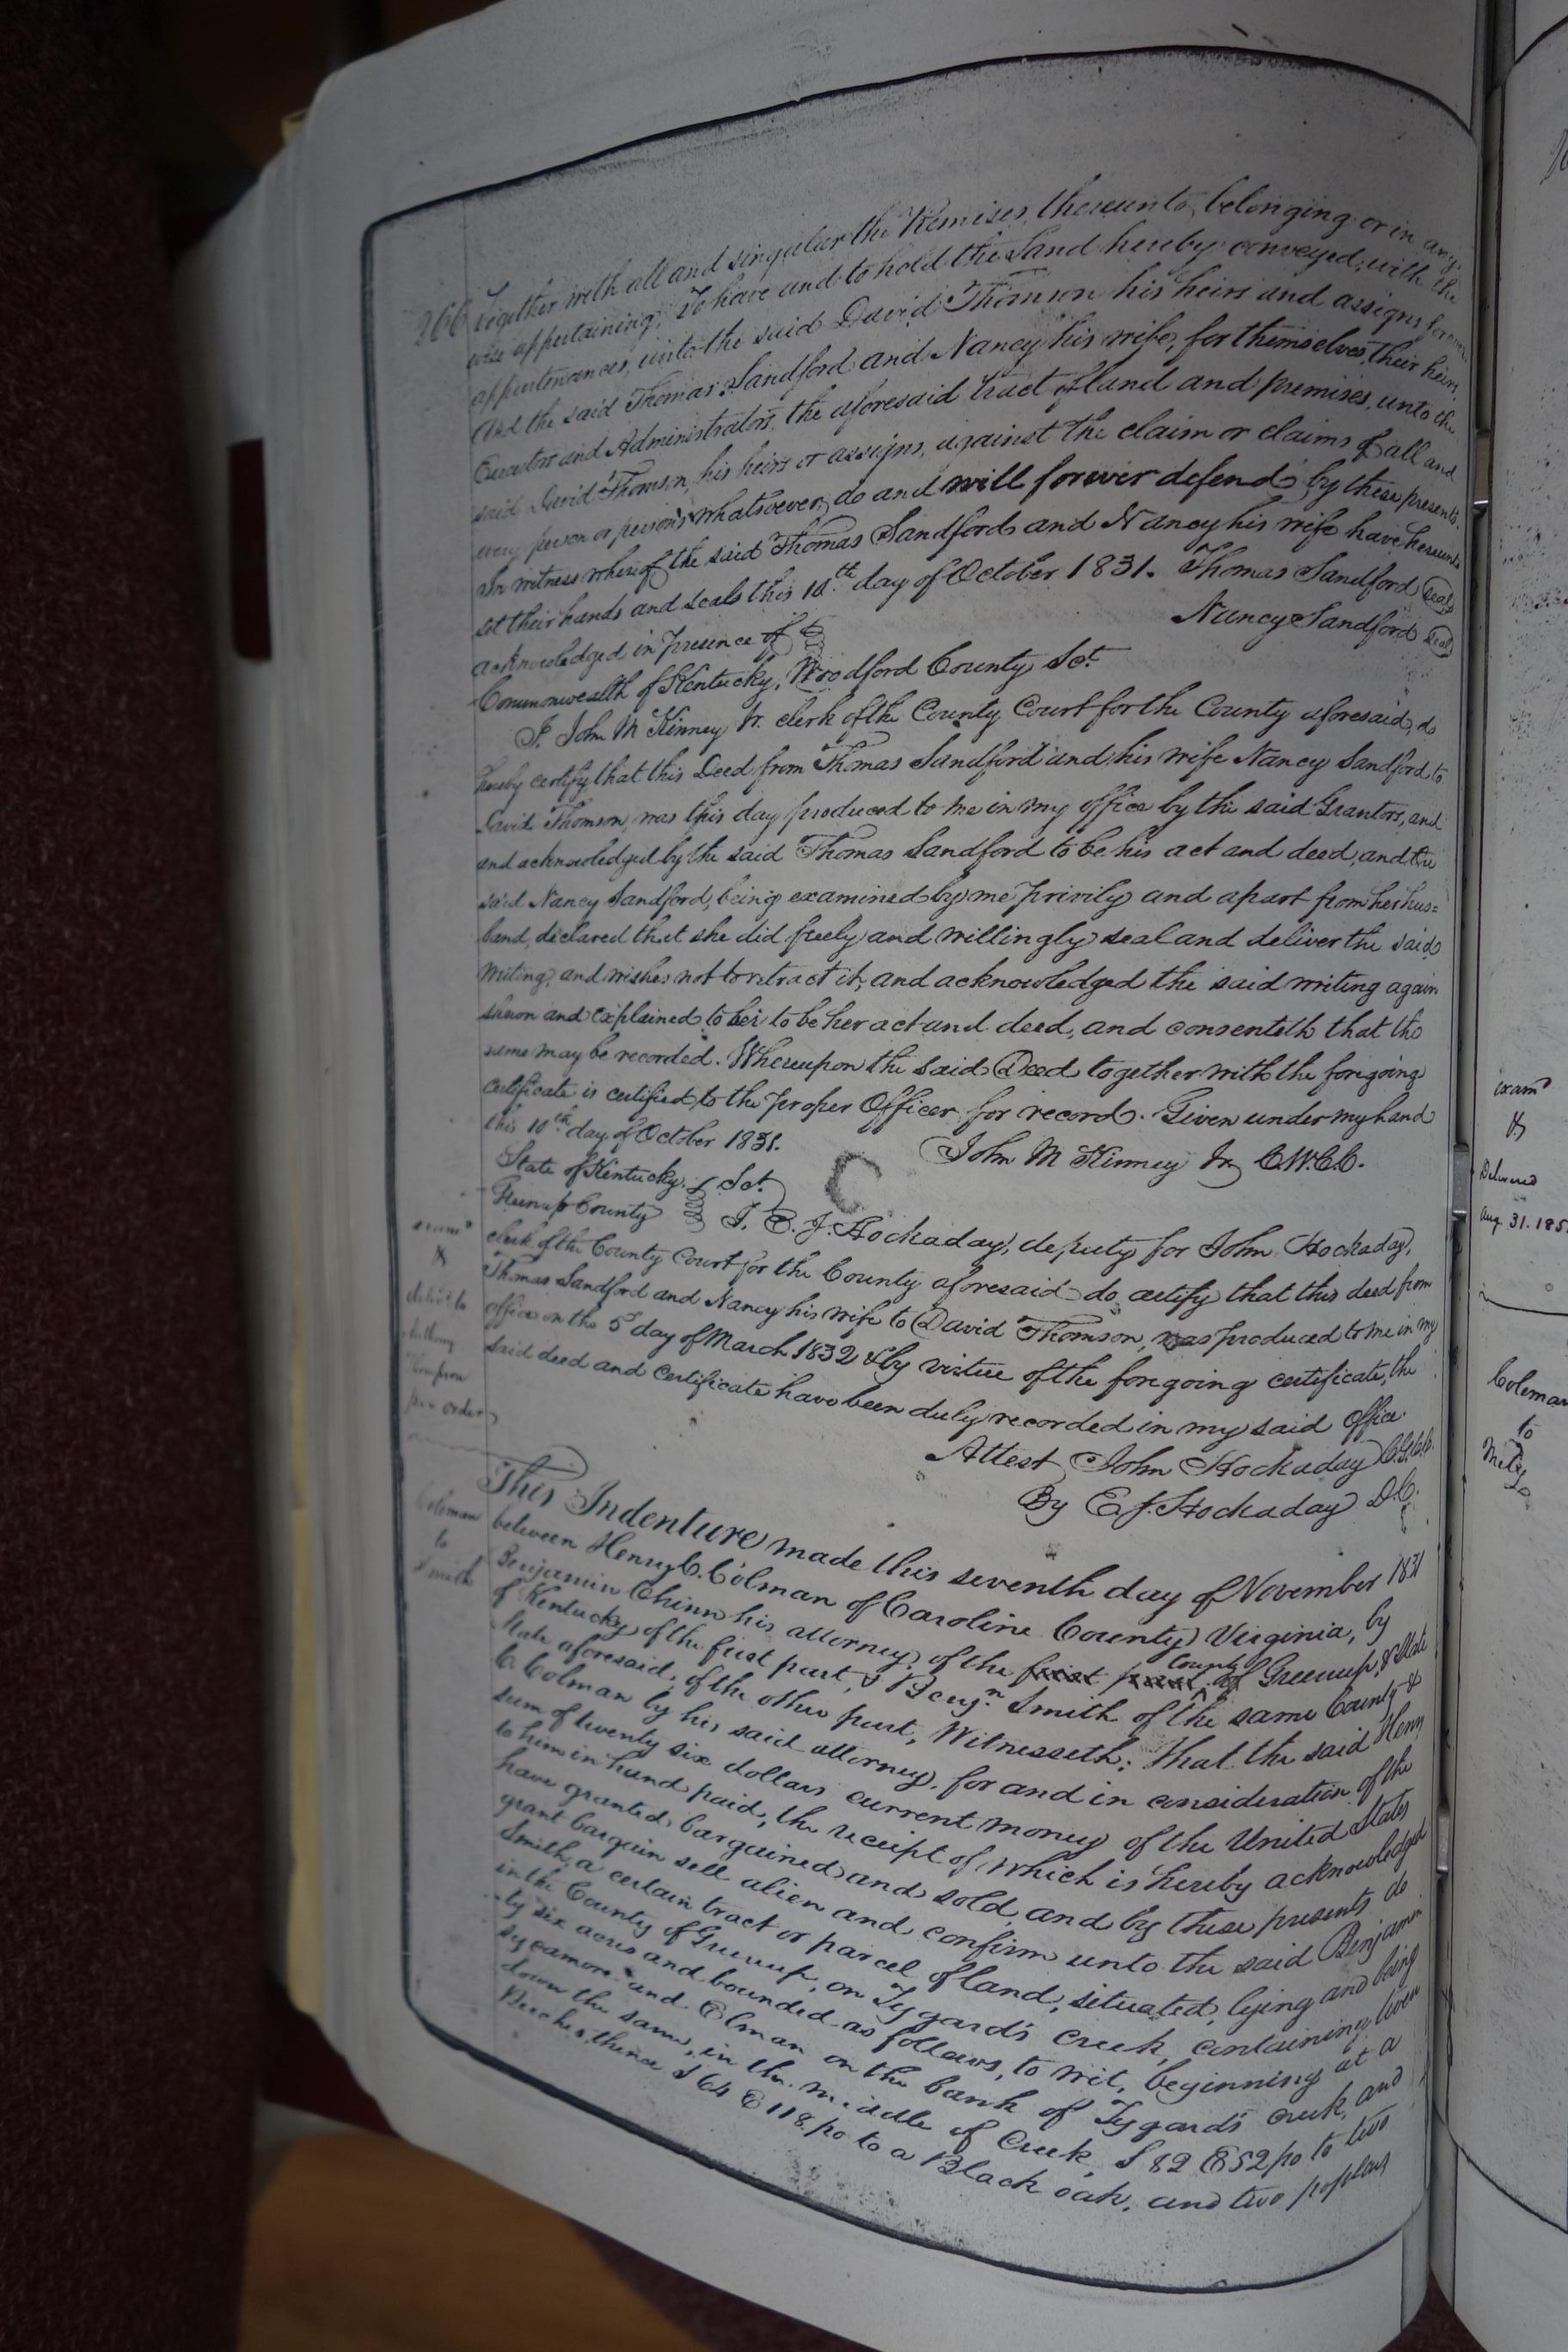 266 Together with all and singular the Premises thereunto belonging or in any
wise appertaining, To have and to hold the Land hereby conveyed, with the
appurtenances, unto the said David Thomson his heirs and assigns forever
And the said Thomas Sandford and Nancy his wife, for themselves, their heirs,
Executors and Administrators, the aforesaid tract of land and premises, unto the
said David Thomson, his heirs or assigns, against the claim or claims of all and
every person or persons whatsoever, do and will forever defend by these presents.
In witness whereof the said Thomas Sandford and Nancy his wife have hereunto
set their hands and seals this 10th day of October 1831. Thomas Sandford (Seal)
Nancy Sandford (Seal)
acknowledged in presence of
Commonwealth of Kentucky, Woodford County Sct
I, John M Kinney Jr. clerk of the County Court for the County aforesaid, do
hereby certify that this Deed from Thomas Sandford and his wife Nancy Sandford to
David Thomson, was this day produced to me in my office by the said Grantors, and
and acknowledged by the said Thomas Sandford to be his act and deed, and the
said Nancy Sandford, being examined by me privily and apart from her hus=
band, declared that she did freely and willingly seal and deliver the said
writing, and wishes not to retract it, and acknowledged the said writing again
shewn and explained to her to be her act and deed, and consenteth that the
same may be recorded. Whereupon the said Deed together with the foregoing
certificate is certified to the proper Officer for record. Given under my hand
this 10th day of October 1831.
John M Kinney Jr C.W.C.C.
State of Kentucky Sct.
Greenup County
I, E. J. Hockaday, deputy for John Hockaday,
clerk of the County Court for the County aforesaid do certify that this deed from
Thomas Sandford and Nancy his wife to David Thomson, was produced to me in my
office on the 5 day of March 1832 & by virtue of the foregoing certificate, the
said deed and certificate have been duly recorded in my said Office.
Attest John Hockaday C.G.C.C.
By E. J. Hockaday D.C.
exam
&
deliv'd to
Thompson
per order
Coleman
to
Smith
This Indenture made this seventh day of November 1831
between Henry C. Colman of Caroline County Virginia, by
Benjamin Chinn his attorney, of the first part County of Greenup, & State
of Kentucky of the first part, & Benjn Smith of the same County &
State aforesaid, of the other part, Witnesseth: that the said Henry
C Colman by his said attorney, for and in consideration of the
sum of twenty six dollars current money of the United States
to him in hand paid, the receipt of which is hereby acknowledged
have granted, bargained and sold, and by these presents do
grant bargain sell alien and confirm unto the said Benjamin
Smith, a certain tract or parcel of land, situated, lying and being
in the County of Greenup, on Tygard's creek, containing twen
ty six acres and bounded as follows, to wit, beginning at a
sycamore and Elman on the bank of Tygard's creek, and
down the same, in the middle of Creek, S 82 E 52 po to two
Beeches, thence S 64 E 118 po to a Black oak, and two poplars
exam'd
&
Delivered
Aug. 31. 185
Coleman
to